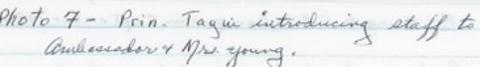 Photo 7 - Prin. Taguin introducing staff to
Ambassador & Mrs. Young.